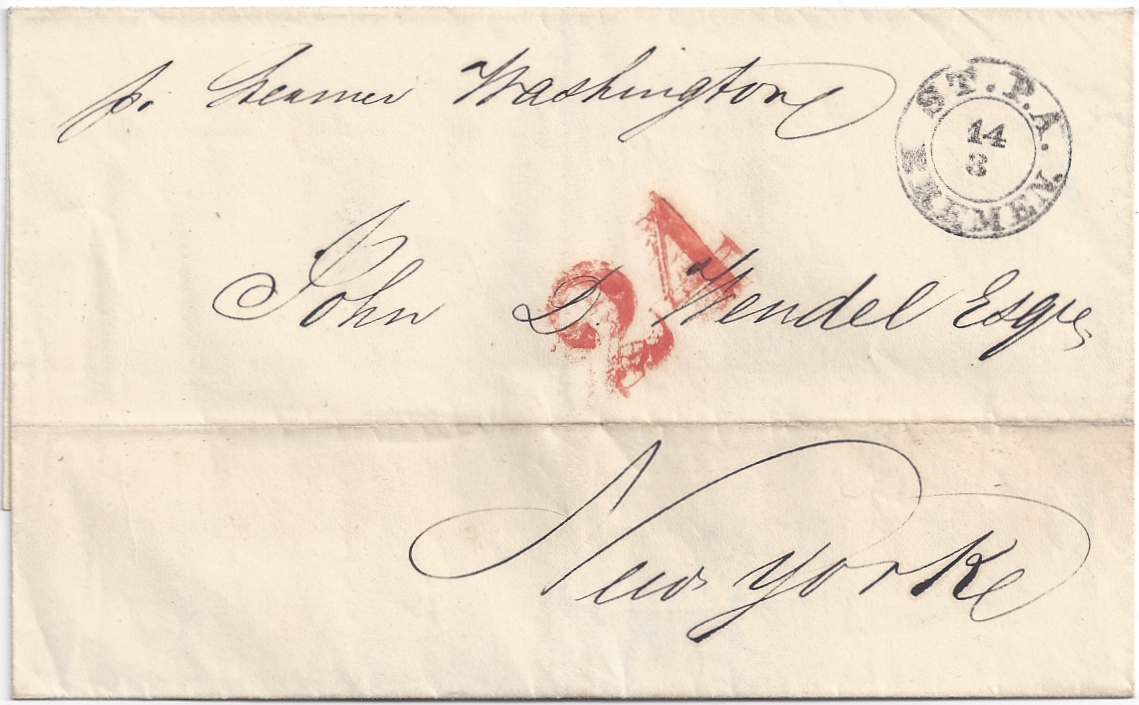 p. Steamer Washington
ST. P. A.
14
3
BREMEN.
24
John D. Wendel Esqre
New York